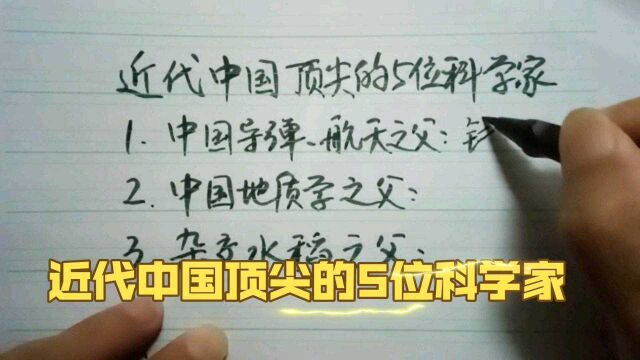 近代中国顶尖的5位科学家
1. 中国导弹、航天之父：钅
2. 中国地质学之父：
3. 杂交水稻之父：
近代中国顶尖的5位科学家